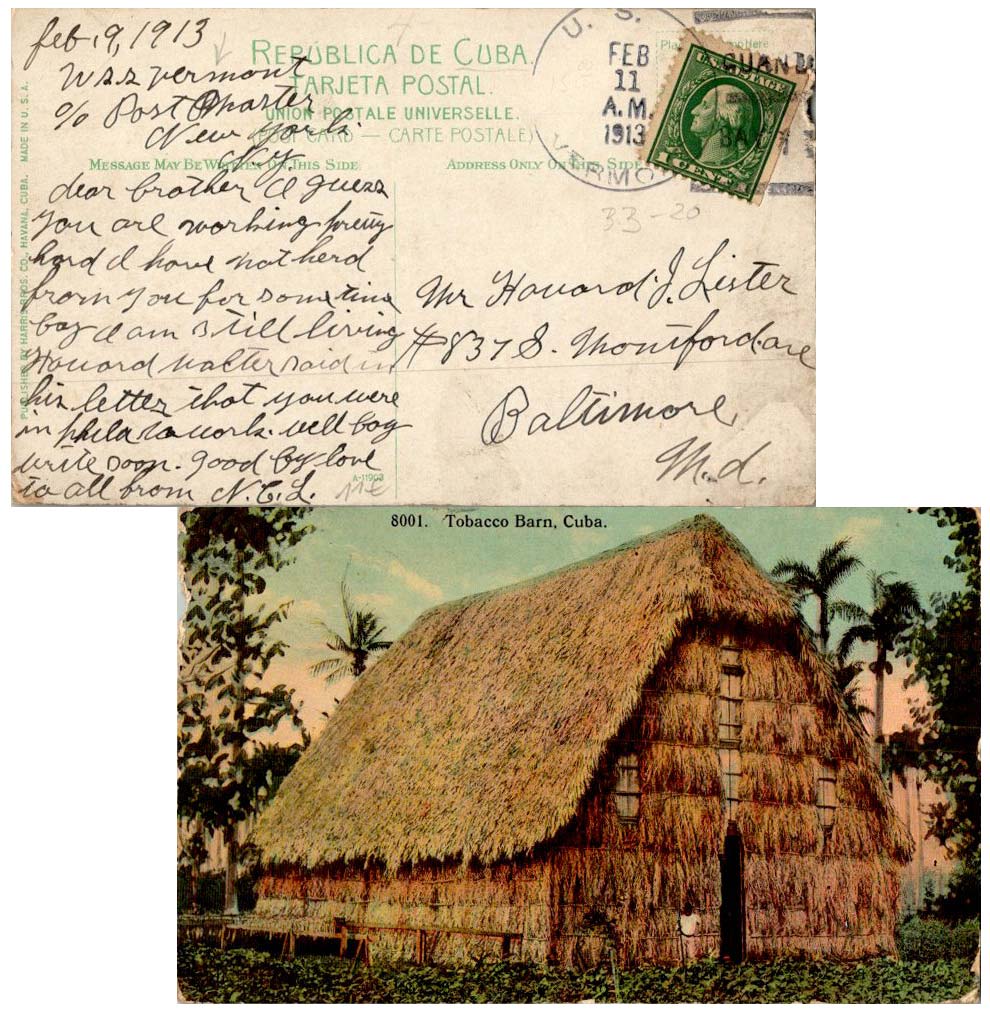 feb. 9, 1913
Uss Vermont
c/o Post Master
New York.
N.y.
dear brother I guess
you are working pretty
hard I have not herd
from you for some time
boy I am still living
Howard Walter said in
his letter that you were
in phila to work. well boy
write soon. good by love
to all from N.C.L.
REPÚBLICA DE CUBA.
TARJETA POSTAL.
UNION POSTALE UNIVERSELLE.
(POST CARD — CARTE POSTALE)
MESSAGE MAY BE WRITTEN ON THIS SIDE
ADDRESS ONLY ON THIS SIDE
PUBLISHED BY HARRIS BROS. CO., HAVANA, CUBA. MADE IN U. S. A.
A-11903
11€
U. S.
FEB
11
A.M.
1913
VERMO
Pla Here
U.S. POSTAGE
1 CENT 1
GUAN
BA
33-20
Mr Howard J. Lister
#837 S. Montford. ave
Baltimore
M.d.
8001. Tobacco Barn, Cuba.